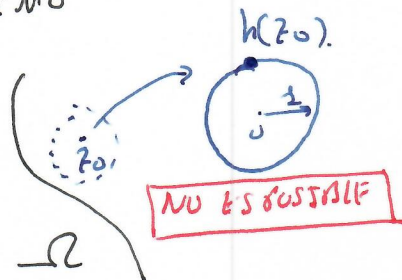 h(z₀).
z₀
1
0
NO ES POSIBLE
Ω